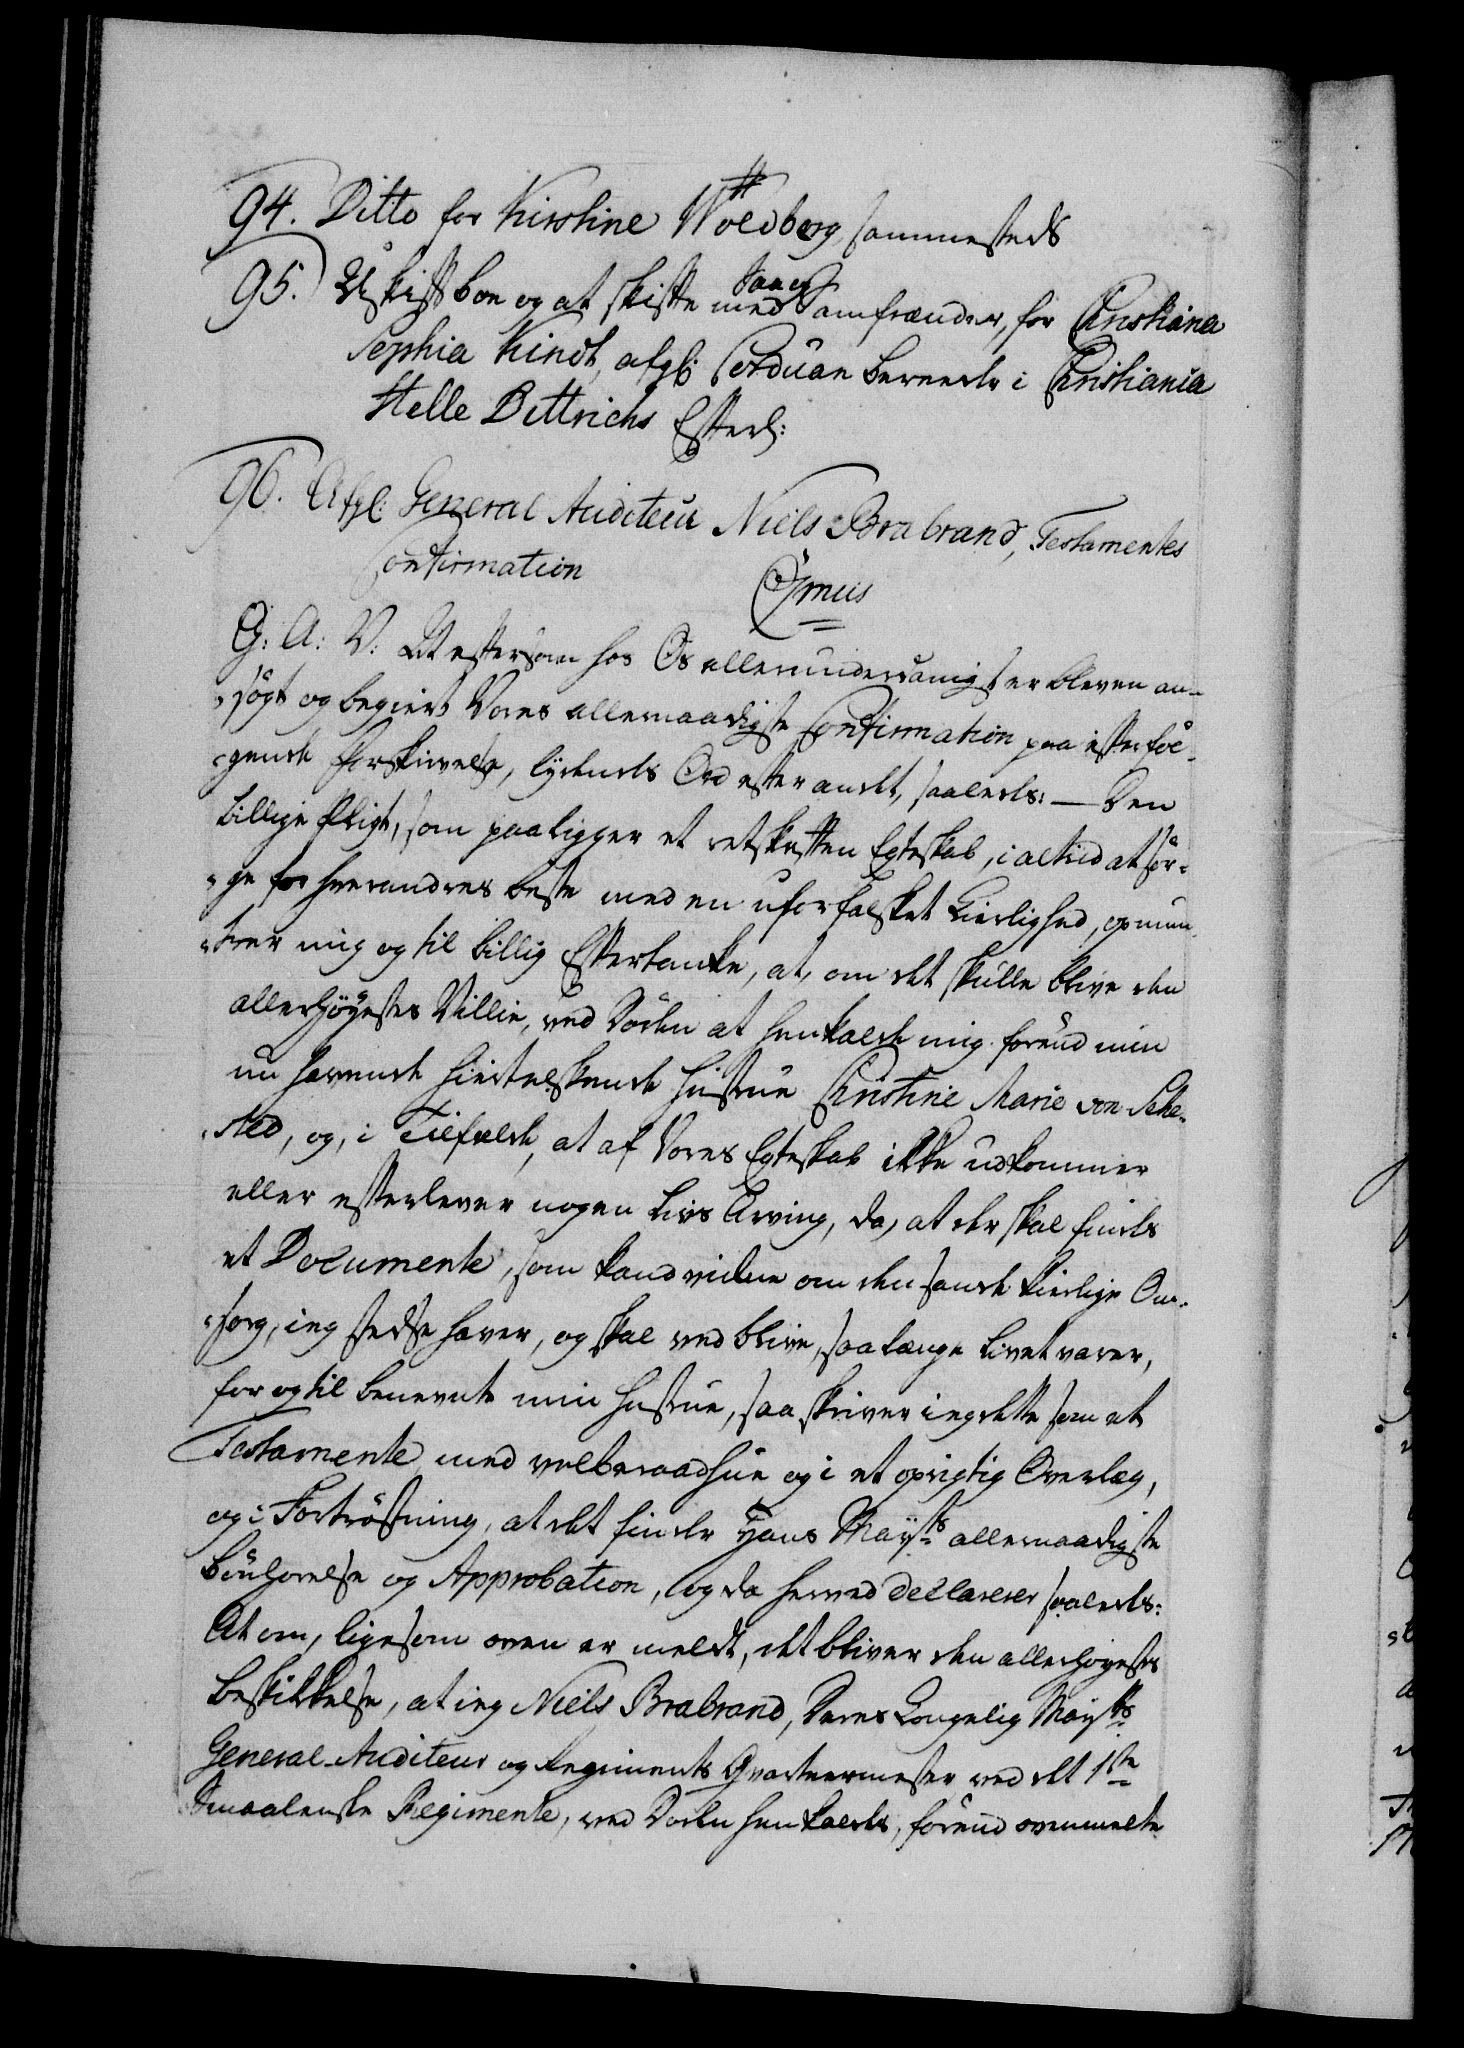 94. Ditto for Kirstine Woldberg, sammesteds
95. Uskift boe og at skifte med Samfrænder, for Christiana
Sophia Kindt, afgl: Corduan bereeder i Christiania
Helle Dittrichs Efterl:
96. Afgl: General Auditeur Niels Brabrand, Testamentes
Confirmation
G: A: V: At eftersom hos Os allerunderdanigst er bleven an-
søgt og begiert Vores allernaadigste Confirmation paa efterføl-
gende Forskrivelse, lydendes Ord efter andet, saaledes: — Den
billige Pligt, som paaligger et retskaffen Egteskab, i altid at sør-
ge for hverandres beste med en uforfalsket Kierlighed, opmun-
trer mig og til billig Eftertanke, at, om det skulle blive den
allerhøyestes Villie, ved Døden at henkalde mig forend min
nu havende hiertelskende Hustrue Christine Marie von Sche-
sted, og, i Tilfælde, at af Vores Egteskab ikke udkommer
eller efterlever nogen Livs Arving, da, at der skal findes
et Documente, som kand vidne om den sande kierlige Om-
sorg, ieg stedse haver, og skal ved blive, saa længe Livet varer,
for og til benevnte min Hustrue, saa skriver ieg dette som et
Testamente med velberaadhue og i et oprigtig Overlæg,
og i Fortrøstning, at det finder Hans Mayts allernaadigste
Bønhørelse og Approbation, og da herved declarerer saaledes:
At om, ligesom oven er meldt, det bliver den allerhøyestes
Beskikkelse, at ieg Niels Brabrand, Deres Kongelig Mayts
General-Auditeur og Regiments Qvarteermester ved det 1ste
Smaalenske Regimente, ved Døden henkaldes, førend ovenmelte